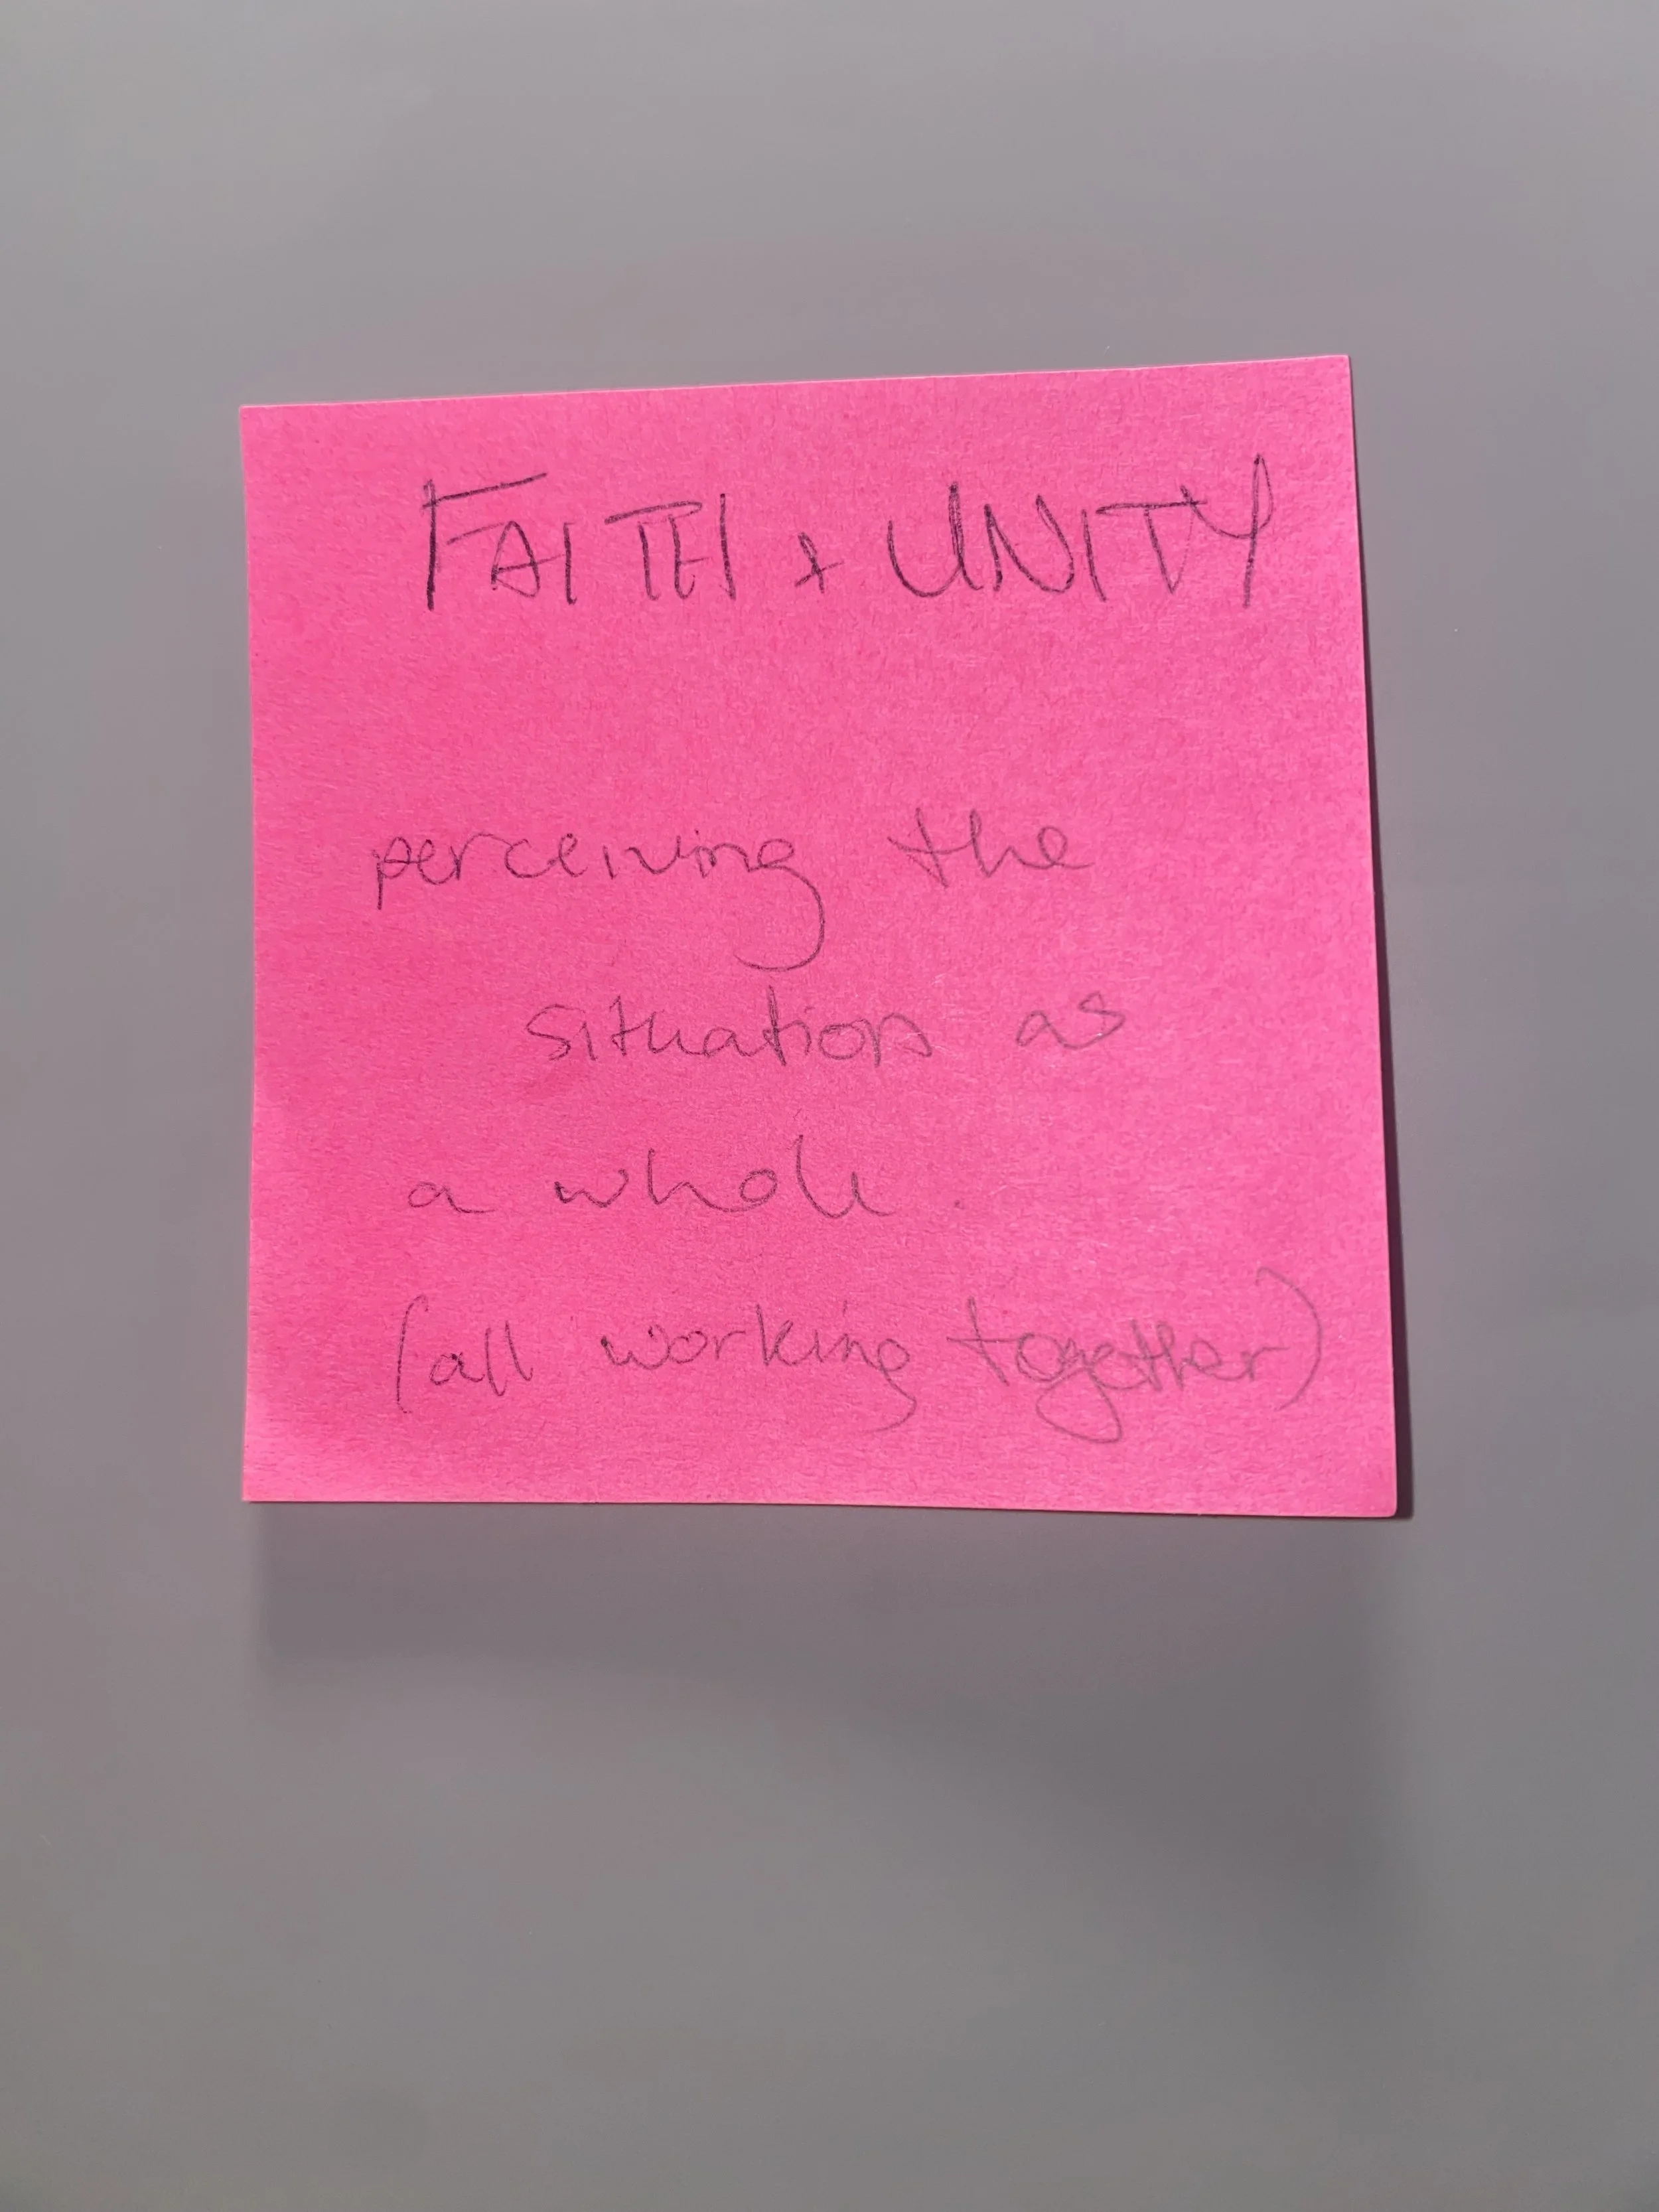 FAITH + UNITY
perceiving the
situation as
a whole.
(all working together)